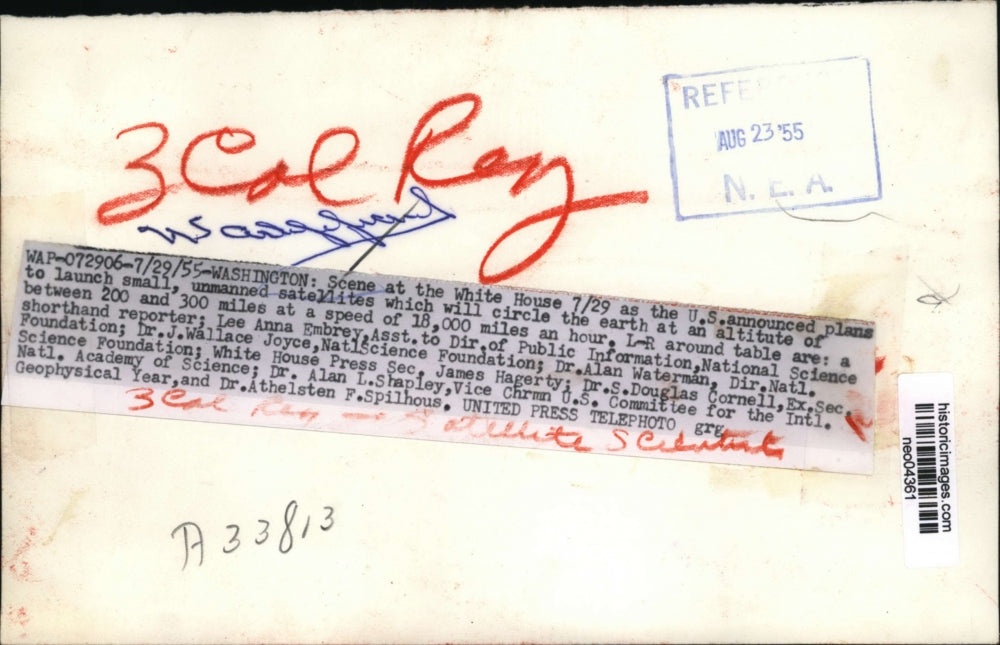 3 Col Reg
AUG 23 '55
N. E. A.
WAP-072906-7/29/55-WASHINGTON: Scene at the White House 7/29 as the U.S.announced plans
to launch small, unmanned satellites which will circle the earth at an altitute of
between 200 and 300 miles at a speed of 18,000 miles an hour. L-R around table are: a
shorthand reporter; Lee Anna Embrey,Asst.to Dir.of Public Information,National Science
Foundation; Dr.J.Wallace Joyce,NatlScience Foundation; Dr.Alan Waterman, Dir.Natl.
Science Foundation; White House Press Sec. James Hagerty; Dr.S.Douglas Cornell,Ex.Sec.
Natl. Academy of Science; Dr. Alan L.Shapley,Vice Chrmn U.S. Committee for the Intl.
Geophysical Year,and Dr.Athelsten F.Spilhous. UNITED PRESS TELEPHOTO grg
3 Col Reg - Satellite Scientists
historicimages.com
neo04361
A 33813